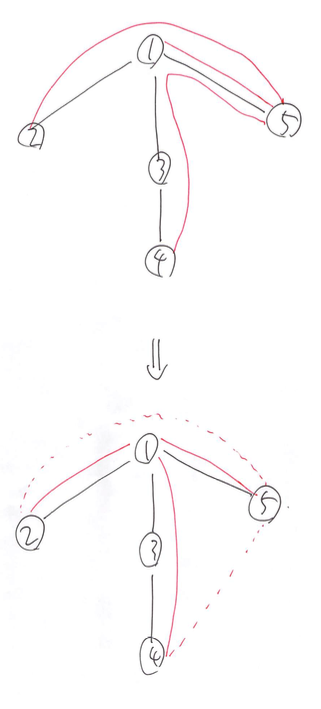 1
2
5
3
4
⇓
1
2
5
3
4